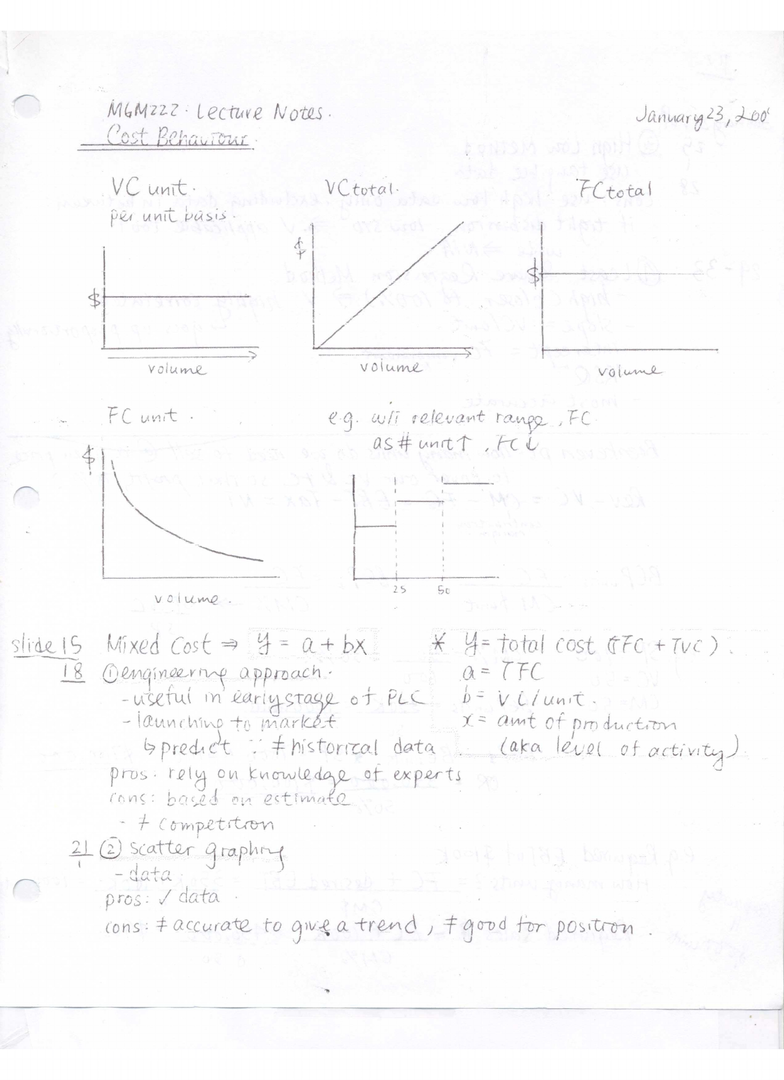 MGM222. Lecture Notes.
January 23, 200
Cost Behaviour.
VC unit.
per unit basis.
$
volume
VC total.
$
volume
FC total
$
volume
FC unit.
$
volume.
e.g. w/i relevant range, FC
as # unit ↑, FC ↓
25 50
slide 15 Mixed Cost ⇒ y = a + bx
18 ① engineering approach.
- useful in early stage of PLC
- launching to market
↳ predict ∵ ≠ historical data
pros: rely on knowledge of experts
cons: based on estimate
- ≠ competition
* y = total cost (TFC + TVC).
a = TFC
b = VC/unit.
x = amt of production
(aka level of activity)
21 ② scatter graphing
- data
pros: ✓ data
cons: ≠ accurate to give a trend, ≠ good for position.